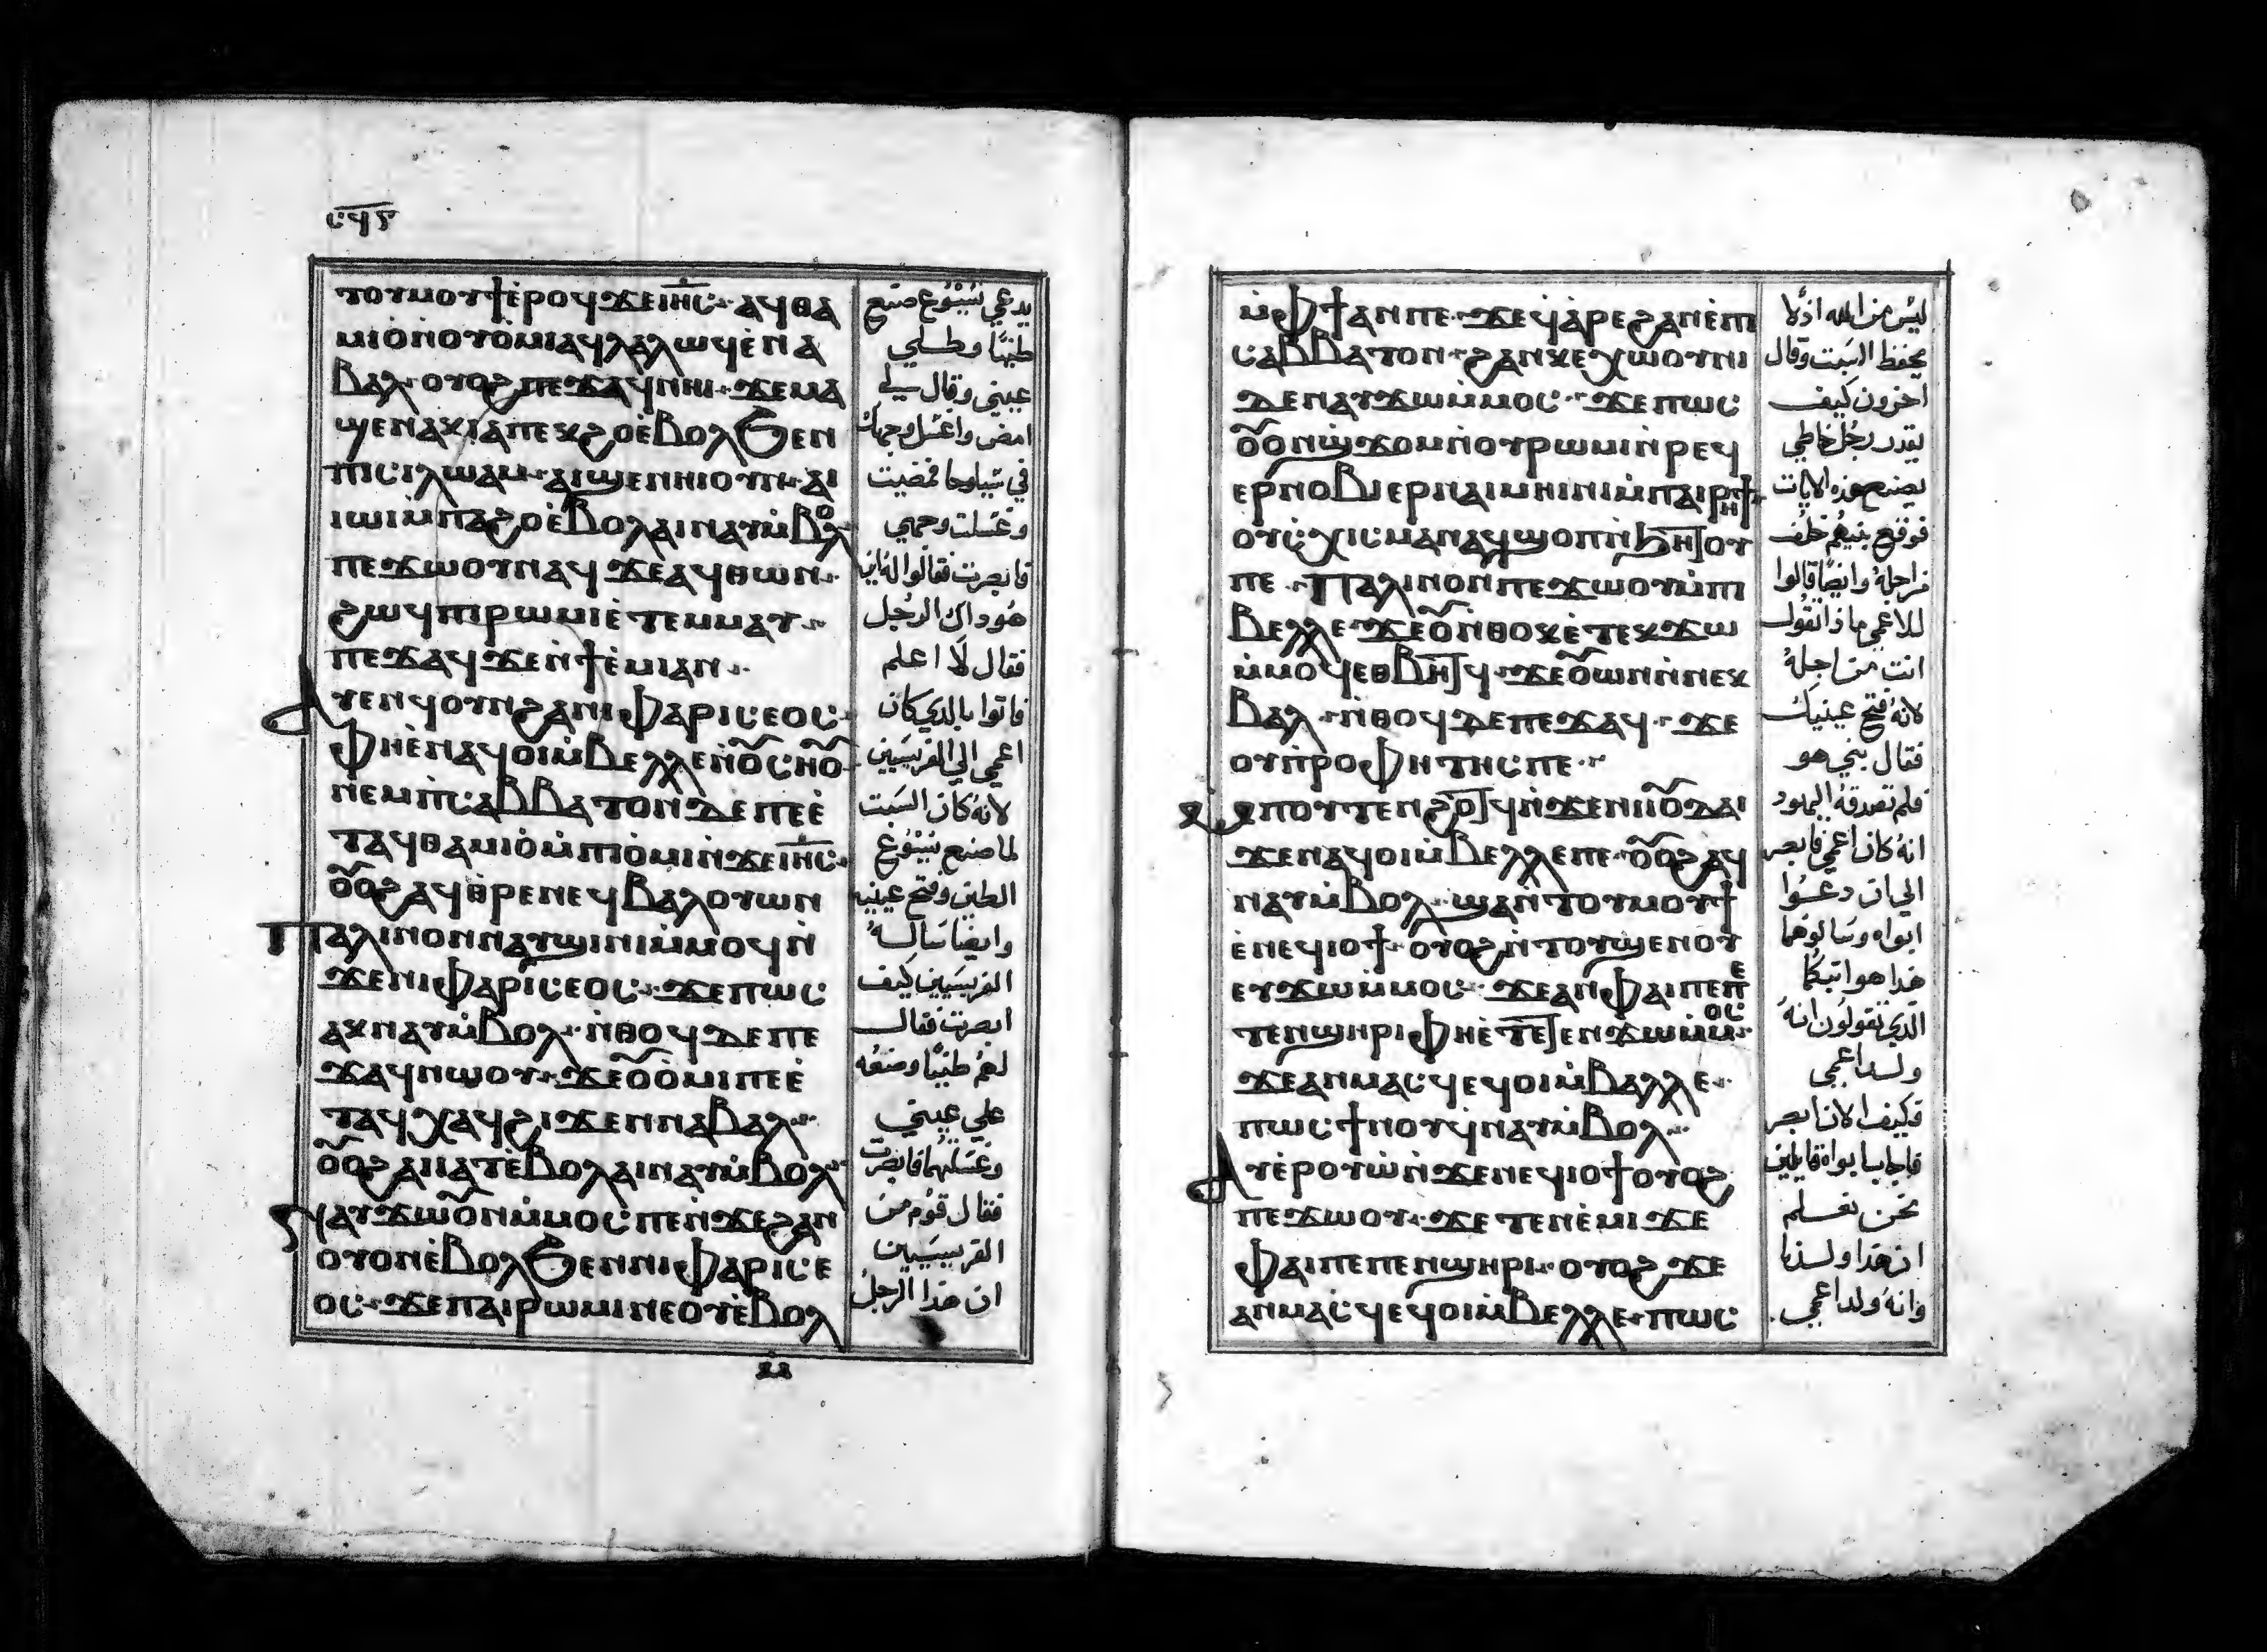 ⲥ̅ϥ̅ⲋ̅
ⲧⲟⲩⲙⲟⲩϯⲉ̀ⲣⲟϥϫⲉⲓ̅ⲏ̅ⲥ̅· ⲁϥⲑⲁ
ⲙⲓⲟ̀ⲛ̀ⲟⲩⲟ̀ⲙⲓⲁϥⲗⲁⲗⲱϥⲉ̀ⲛⲁ
ⲃⲁⲗ· ⲟⲩⲟϩⲡⲉϫⲁϥⲛⲏⲓ· ϫⲉⲙⲁ
ϣⲉⲛⲁⲕⲓⲁⲡⲉⲕϩⲟⲉ̀ⲃⲟⲗϧⲉⲛ
ⲡⲓⲥⲓⲗⲱⲁⲙ· ⲁⲓϣⲉⲛⲏⲓⲟⲩⲛ· ⲁⲓ
ⲓⲱⲓⲙ̀ⲡⲁϩⲟⲉ̀ⲃⲟⲗⲁⲓⲛⲁⲩⲙ̀ⲃⲟⲗ
ⲡⲉϫⲱⲟⲩⲛⲁϥϫⲉⲁϥⲑⲱⲛ·
ϩⲱϥⲡⲓⲣⲱⲙⲓⲉ̀ⲧⲉⲙⲙⲁⲩ·
ⲡⲉϫⲁϥϫⲉⲛ̀ϯⲉ̀ⲙⲓⲁⲛ·
ⲁⲩⲉⲛϥⲟⲩⲛϩⲁⲛⲓⲫⲁⲣⲓⲥⲉⲟⲥ·
ⲫⲏⲉ̀ⲛⲁϥⲟⲓⲙ̀ⲃⲉⲗⲗⲉⲛ̀ⲟ̅ⲥⲛ̀ⲟ̅
ⲛⲉⲙ̀ⲡⲥⲁⲃⲃⲁⲧⲟⲛⲇⲉⲡⲉⲉ̀
ⲧⲁϥⲑⲁⲙⲓⲟ̀ⲙ̀ⲡⲓⲟ̀ⲙⲓⲛ̀ϫⲉⲓ̅ⲏ̅ⲥ̅·
ⲟ̅ⲟϩⲁϥⲑ̀ⲣⲉⲛⲉϥⲃⲁⲗⲟⲩⲱⲛ
ⲡⲁⲗⲓⲛⲟⲛⲛⲁⲩϣⲓⲛⲓⲙ̀ⲙⲟϥⲛ̀
ϫⲉⲛⲓⲫⲁⲣⲓⲥⲉⲟⲥ· ϫⲉⲡⲱⲥ
ⲁⲕⲛⲁⲩⲙ̀ⲃⲟⲗ· ⲛ̀ⲑⲟϥⲇⲉⲡⲉ
ϫⲁϥⲛⲱⲟⲩ· ϫⲉⲟ̅ⲟ̀ⲙⲓⲡⲉⲉ̀
ⲧⲁϥⲭⲁϥϩⲓϫⲉⲛⲛⲁⲃⲁⲗ·
ⲟ̅ⲟϩⲁⲓⲓⲁⲧⲉ̀ⲃⲟⲗⲁⲓⲛⲁⲩⲙ̀ⲃⲟⲗ
ⲛⲁⲩϫⲱⲟ̅ⲛⲙ̀ⲙⲟⲥⲡⲉⲛ̀ϫⲉϩⲁⲛ
ⲟⲩⲟⲛⲉ̀ⲃⲟⲗϧⲉⲛⲛⲓⲫⲁⲣⲓⲥⲉ
ⲟⲥ· ϫⲉⲡⲁⲓⲣⲱⲙⲓⲛⲉⲟⲩⲉ̀ⲃⲟⲗ
يدعي يَسُوع صنع
طينًا وطلي
عيني وقال لي
امض واغسل وجهك
في شيلوحا فمضيت
وغسلت وجهي
فابصرت فقالوا له اين
هُو داك الرجل
فقال لا اعلم
فاتوا بالدي كان
اعمي الي الفريسيين
لانه كان السبت
لما صنع يسوع
الطين وفتح عينيه
وايضا ساله
الفريسيين كيف
ابصرت فقال
لهم طينا وضعه
علي عيني
وغسلتهما فابصرت
فقال قوم من
الفريسيين
ان هدا الرجل
ⲙ̀ⲫϯⲁⲛⲡⲉ· ϫⲉϥ̀ⲁⲣⲉϩⲁⲛⲉ̀ⲡⲓ
ⲥⲁⲃⲃⲁⲧⲟⲛ· ϩⲁⲛⲕⲉⲭⲱⲟⲩⲛⲓ
ⲇⲉⲛⲁⲩϫⲱⲙ̀ⲙⲟⲥ· ϫⲉⲡⲱⲥ
ⲟ̅ⲟⲛϣ̀ϫⲟⲙⲛ̀ⲟⲩⲣⲱⲙⲓⲛ̀ⲣⲉϥ
ⲉⲣⲛⲟⲃⲓⲉⲣⲛⲁⲓⲙⲏⲓⲛⲓⲙ̀ⲡⲁⲓⲣⲏϯ
ⲟⲩⲥ̀ⲭⲓⲥⲙⲁⲛⲁϥϣⲟⲡⲛ̀ϧⲏⲧⲟⲩ
ⲡⲉ· ⲡⲁⲗⲓⲛⲟⲛⲡⲉϫⲱⲟⲩⲙ̀ⲡⲓ
ⲃⲉⲗⲗⲉ· ϫⲉⲟ̅ⲛ̀ⲑⲟⲕⲉ̀ⲧⲉⲕϫⲱ
ⲙ̀ⲙⲟϥⲉⲑⲃⲏⲧϥ· ϫⲉⲟ̅ⲱⲛⲛ̀ⲛⲉⲕ
ⲃⲁⲗ· ⲛ̀ⲑⲟϥⲇⲉⲡⲉϫⲁϥ· ϫⲉ
ⲟⲩⲡ̀ⲣⲟⲫⲏⲧⲏⲥⲡⲉ·
ⲙⲡⲟⲩⲧⲉⲛϩⲟⲧϥⲛ̀ϫⲉⲛⲓⲓⲟ̅ⲇⲁⲓ
ϫⲉⲛⲁϥⲟⲓⲙ̀ⲃⲉⲗⲗⲉⲡⲉ· ⲟ̅ⲟϩⲁϥ
ⲛⲁⲩⲙ̀ⲃⲟⲗ· ϣⲁⲛ̀ⲧⲟⲩⲙⲟⲩϯ
ⲉ̀ⲛⲉϥⲓⲟϯ· ⲟⲩⲟϩⲛ̀ⲧⲟⲩϣⲉⲛⲟⲩ
ⲉⲩϫⲱⲙ̀ⲙⲟⲥ· ϫⲉⲁⲛⲫⲁⲓⲡⲉⲡⲉ
ⲧⲉⲛϣⲏⲣⲓⲫⲏⲉ̀ⲧⲉⲧⲉⲛϫⲱⲙ̀ⲙⲟⲥ·
ϫⲉⲁⲩⲙⲁⲥϥⲉϥⲟⲓⲙ̀ⲃⲁⲗⲗⲉ·
ⲡⲱⲥϯⲛⲟⲩϥ̀ⲛⲁⲩⲙ̀ⲃⲟⲗ·
ⲁⲩⲉ̀ⲣⲟⲩⲱ̀ⲛ̀ϫⲉⲛⲉϥⲓⲟϯⲟⲩⲟϩ
ⲡⲉϫⲱⲟⲩ· ϫⲉⲧⲉⲛⲉ̀ⲙⲓϫⲉ
ⲫⲁⲓⲡⲉⲡⲉⲛϣⲏⲣⲓ· ⲟⲩⲟϩϫⲉ
ⲁⲩⲙⲁⲥϥⲉϥⲟⲓⲙ̀ⲃⲉⲗⲗⲉ· ⲡⲱⲥ
ليس من الله اذ لا
يحفظ السبت وقال
اخرون كيف
يقدر رجل خاطي
يصنع هذه الايات
فوقع بينهم خلف
من اجله وايضا قالوا
للاعمي ماذا تقول
انت من اجله
لانه فتح عينيك
فقال نبي هو
فلم تصدقه اليهود
انه كان اعمي فابصر
الي ان دعوا
ابواه وسالوهما
هدا هو ابنكما
الدي تقولون انه
ولد اعمي
فكيف الان ابصر
فاجابا ابواه قايلين
نحن نعلم
ان هدا ولدنا
وانه ولد اعمي